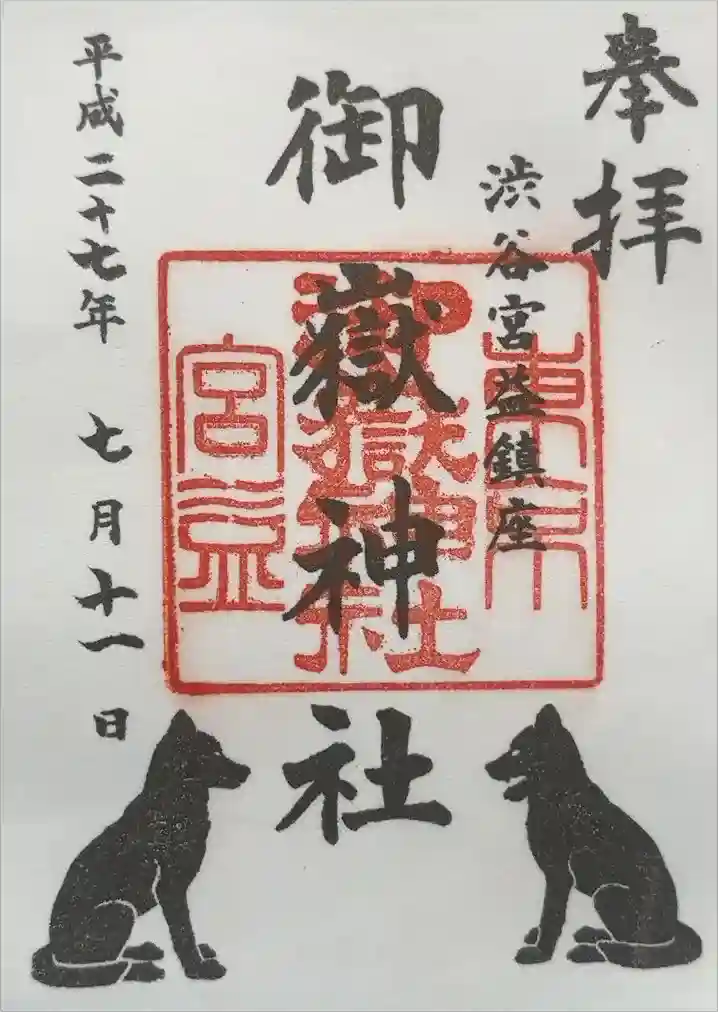 奉拝
渋谷宮益鎮座
御嶽神社
平成二十七年 七月十一日
東京
御嶽神社
宮益